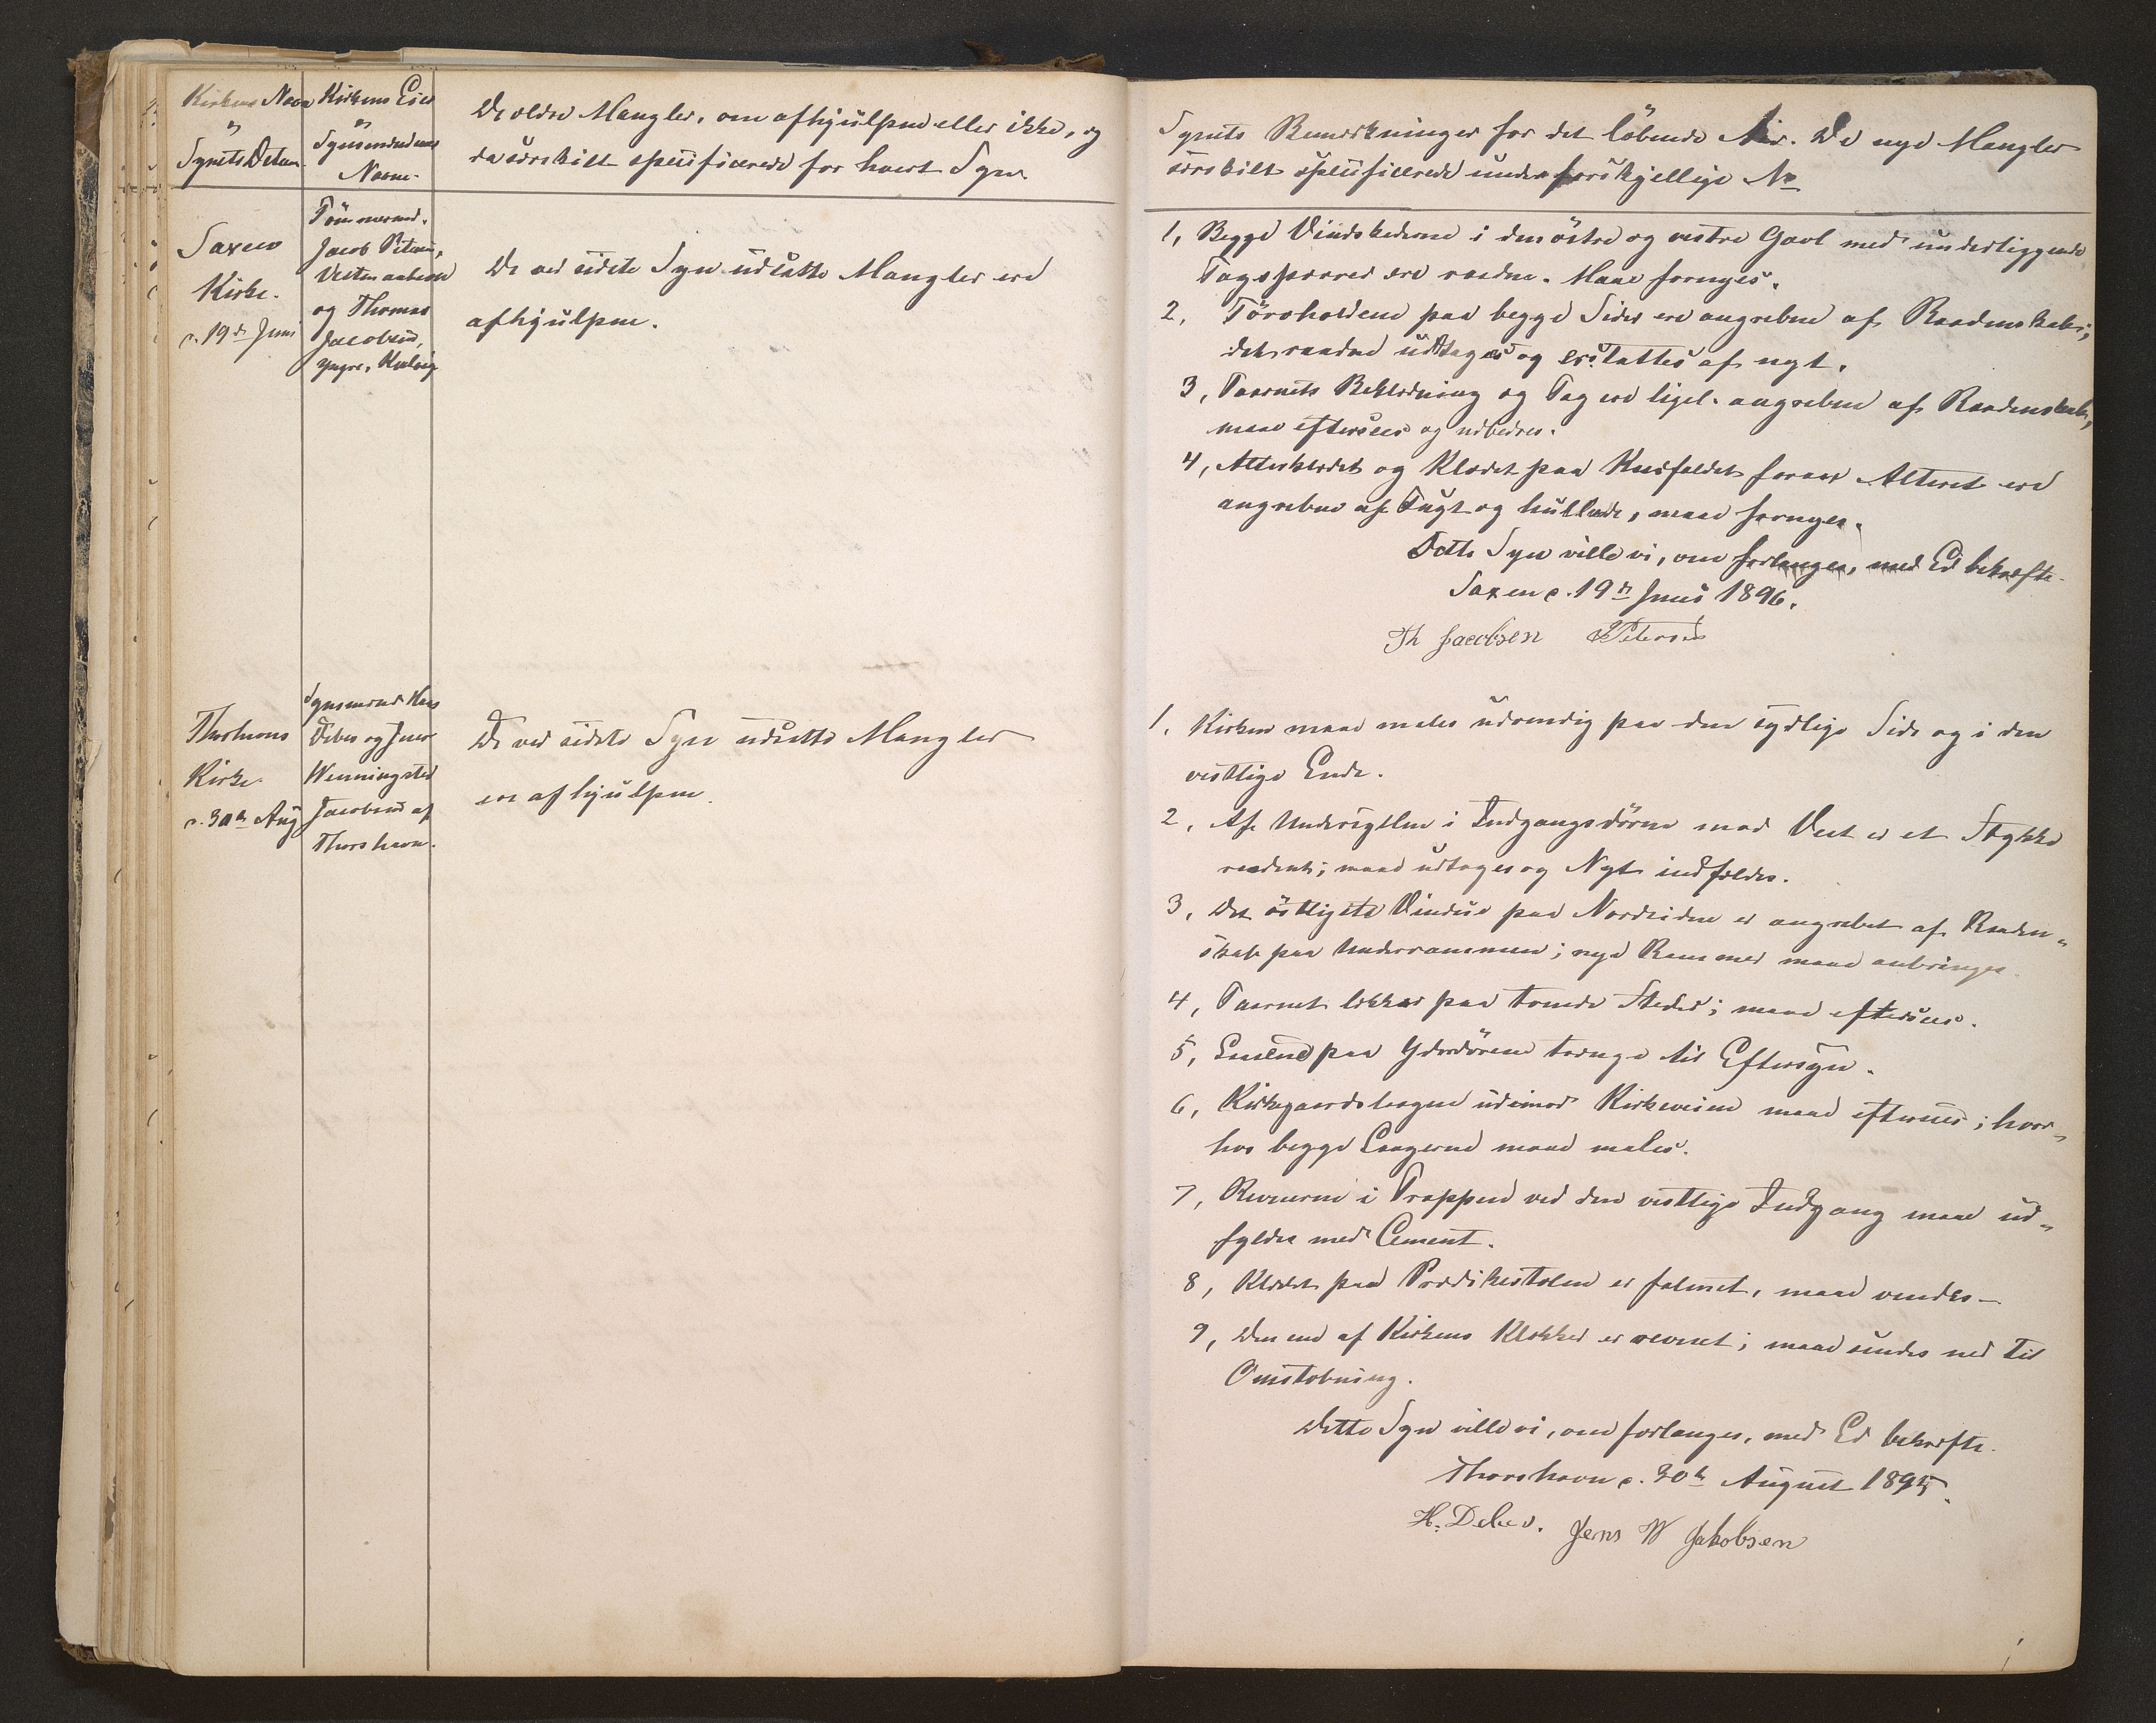 Kirkens Navn
og
Synets Datum
Kirkens Eier
og
Synsmændenes
Navne.
De ældre Mangler, om afhjulpne eller ikke, og
da særskilt specificerede for hvert Syn.
Saxen
Kirke.
d. 19de Juni
Tømmermd.
Jacob Petersen,
Vestmanhavn
og Thomas
Jacobsen,
yngre, Kvalvig
De ved sidste Syn udsatte Mangler ere
afhjulpne.
Thorshavns
Kirke
d. 30te Aug
Synsmænd Hans
Debes og Jens
Wenningsted
Jacobsen af
Thorshavn.
De ved sidste Syn udsatte Mangler
ere afhjulpne.
Synets Bemærkninger for det löbende Aar. De nye Mangler
særskilt specificerede under forskjellige No
1, Begge Vindskederne i den östre og vestre Gavl med underliggende
Tagsparrer ere raadne. Maae fornyes.
2, Törvholdene paa begge Sider ere angrebne af Raadenskab;
det raadne udtages og erstattes af nyt.
3, Taarnets Beklædning og Tag ere ligel. angrebne af Raadenskab,
maae eftersees og udbedres.
4, Alterklædet og Klædet paa Knæfaldet foran Alteret ere
angrebne af Fugt og hullede, maae fornyes.
Dette Syn ville vi, om forlanges, med Ed bekræfte.
Saxen d. 19de Juni 1896.
Th Jacobsen JPetersen
1, Kirken maae males udvendig paa den sydlige Side og i den
vestlige Ende.
2, Af Undersyllen i Indgangsdörene mod Vest er et Stykke
raadent; maae udtages og Nyt indfældes.
3, Det östligste Vindue paa Nordsiden er angrebet af Raaden-
skab paa Underrammen; nye Rammer maae anbringes.
4, Taarnet lækker paa tvende Steder; maae eftersees.
5, Laasene paa Yderdörene trænge til Eftersyn.
6, Kirkegaardslaagen udimod Kirkeveien maae eftersees; hvor-
hos begge Laagerne maae males.
7, Revnerne i Trappen ved den vestlige Indgang maae ud-
fyldes med Cement.
8, Klædet paa Prædikestolen er falmet, maae vendes-
9, Den ene af Kirkens Klokker er revnet; maae sendes ned til
Omstöbning.
Dette Syn ville vi, om forlanges, med Ed bekræfte.
Thorshavn d. 30te August 1895.
H. Debes. Jens W Jakobsen